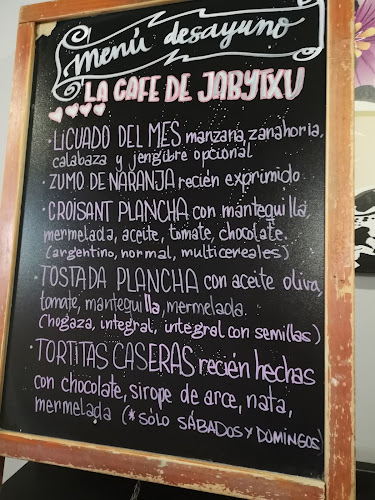 Menú desayuno
LA CAFE DE JABYTXU
· LICUADO DEL MES manzana, zanahoria,
calabaza y jengibre opcional
· ZUMO DE NARANJA recién exprimido
· CROISANT PLANCHA con mantequilla,
mermelada, aceite, tomate, chocolate.
(argentino, normal, multicereales)
· TOSTADA PLANCHA con aceite oliva,
tomate, mantequilla, mermelada.
(hogaza, integral, integral con semillas)
· TORTITAS CASERAS recién hechas
con chocolate, sirope de arce, nata,
mermelada (*SÓLO SÁBADOS Y DOMINGOS)